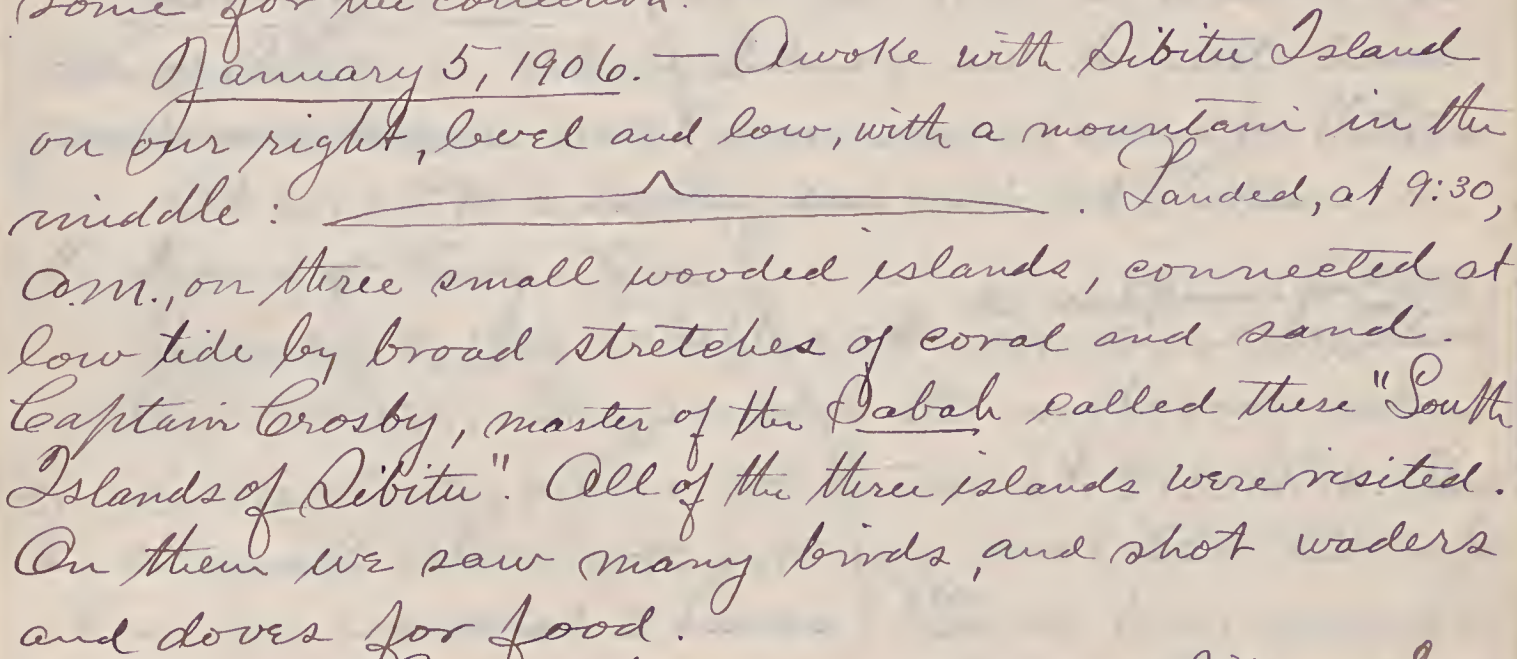 some for the collection.
January 5, 1906. — Awoke with Sibitu Island
on our right, level and low, with a mountain in the
middle: . Landed, at 9:30,
a.m., on three small wooded islands, connected at
low tide by broad stretches of coral and sand.
Captain Crosby, master of the Sabah called these "South
Islands of Sibitu". All of the three islands were visited.
On them we saw many birds, and shot waders
and doves for food.